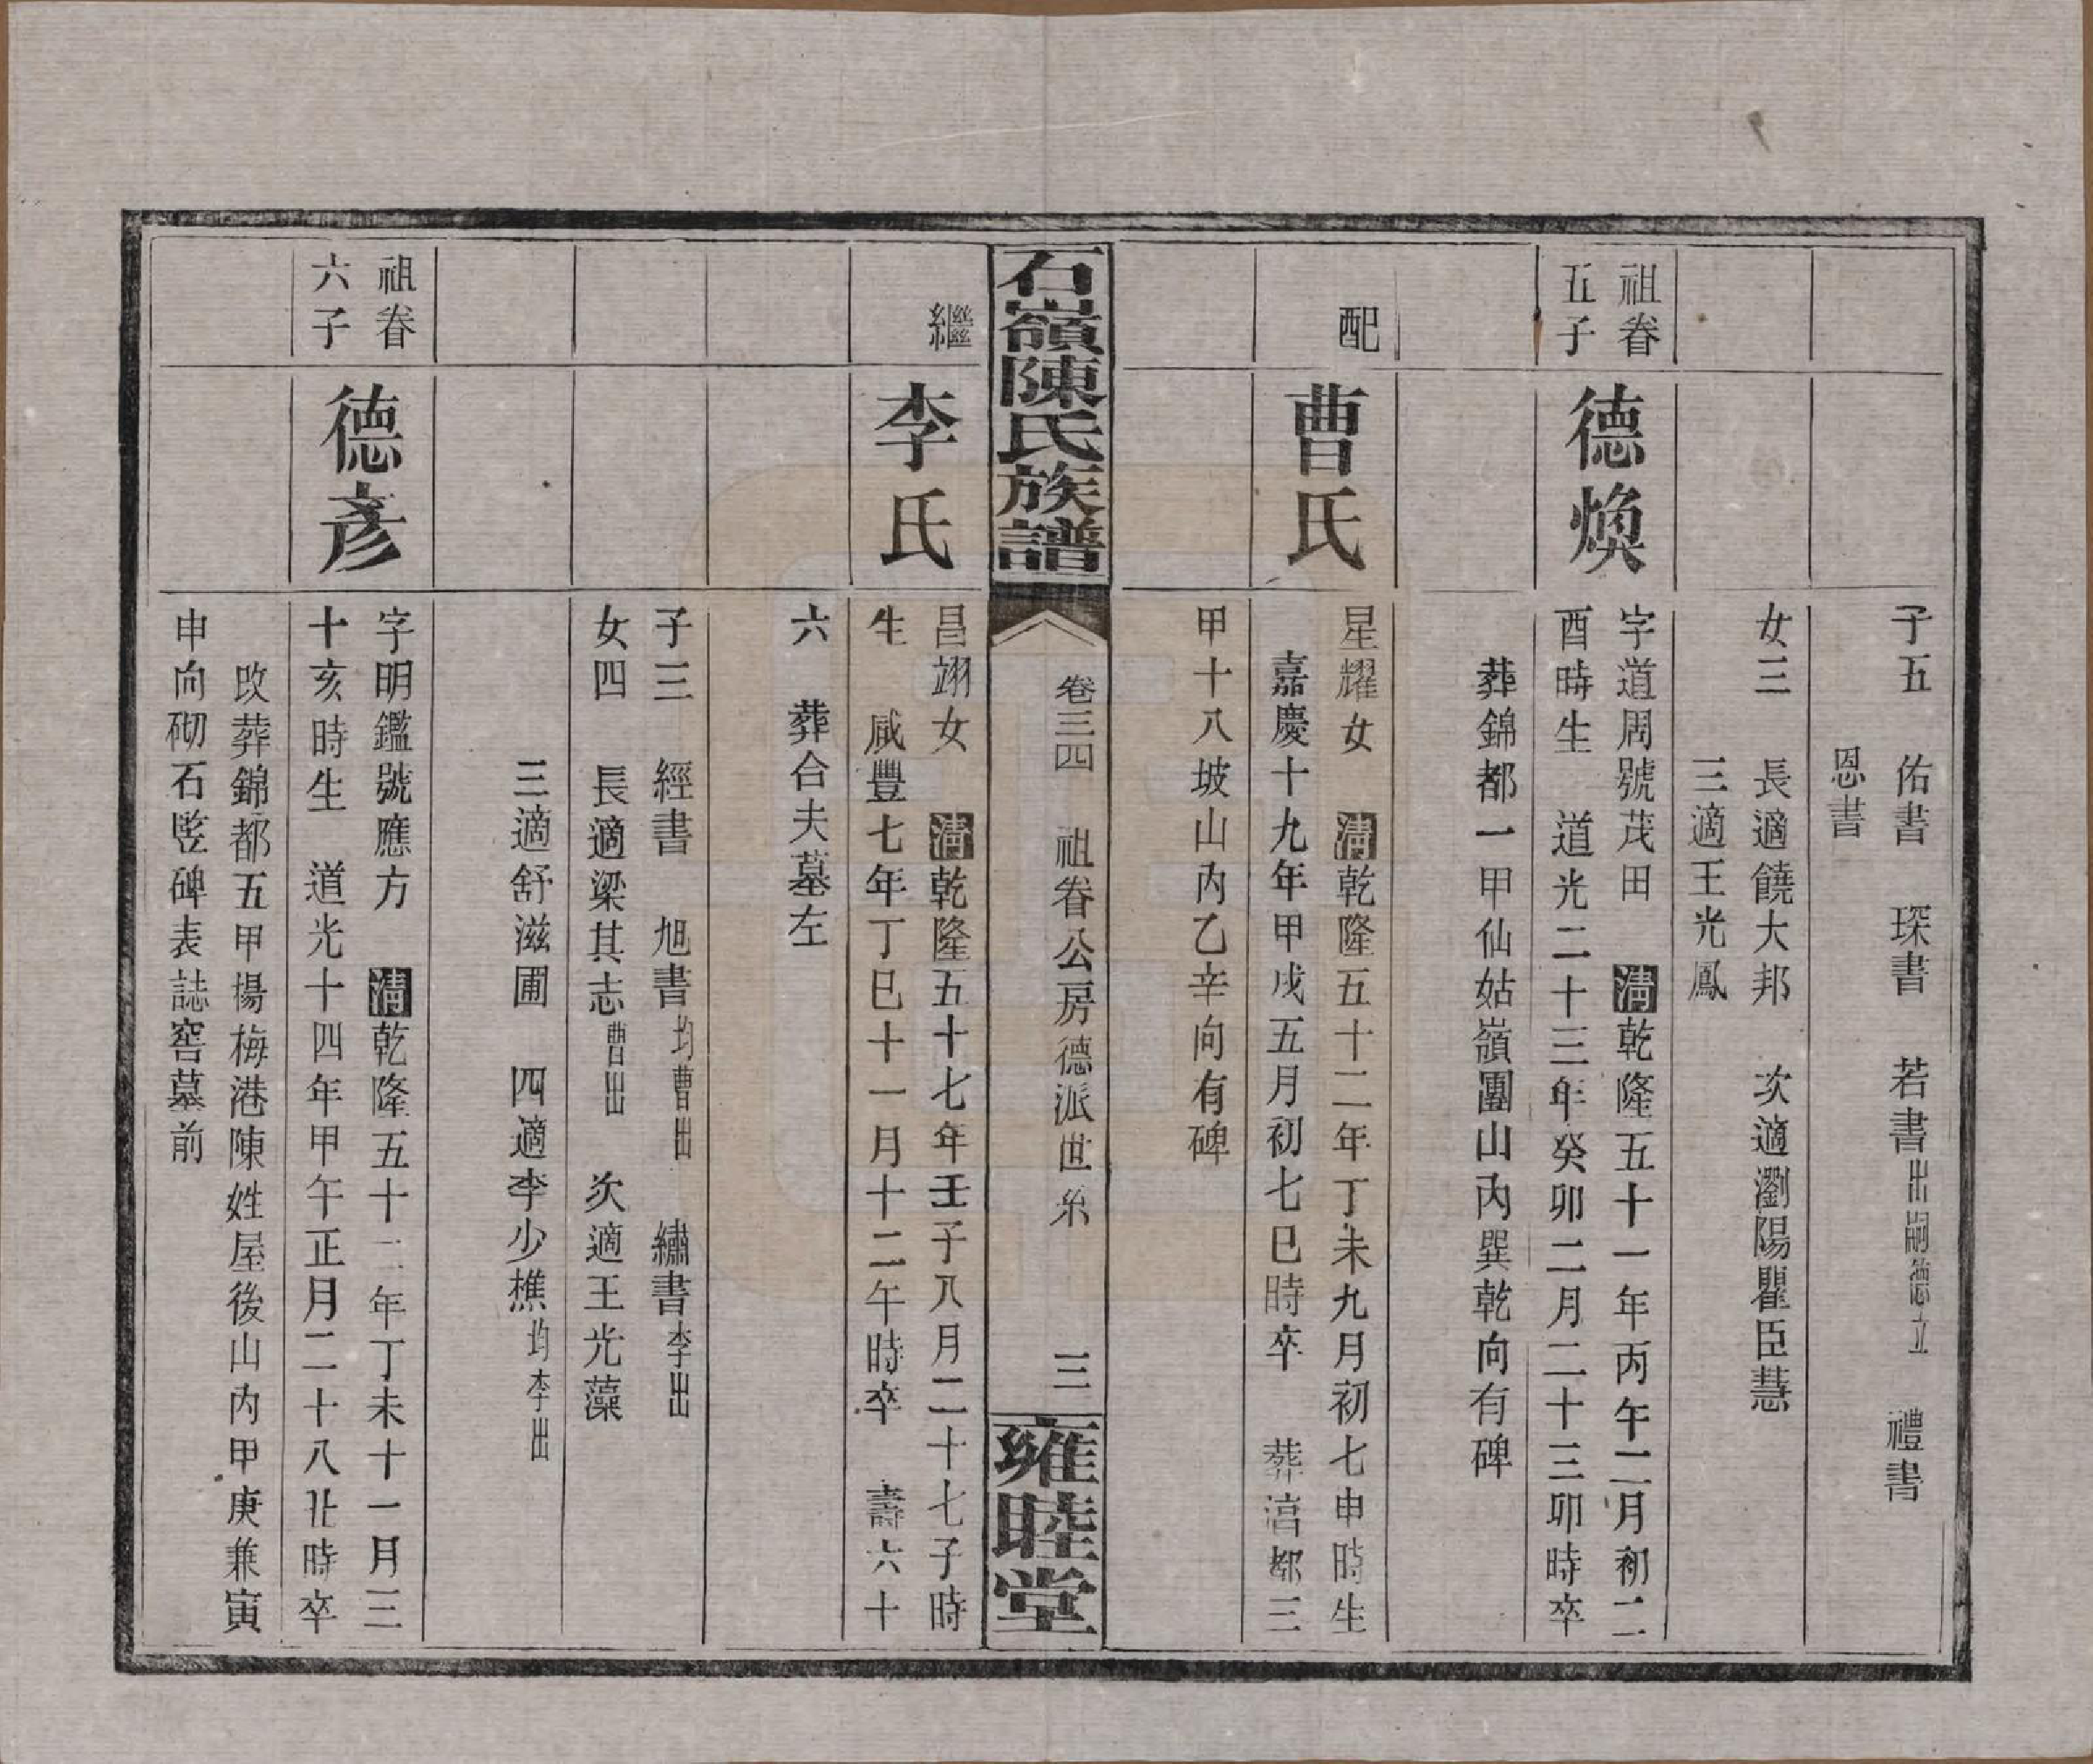 子五　佑書　琛書　若書出嗣德立　禮書
恩書
女三　長適饒大邦　次適瀏陽瞿臣慧
三適王光鳳
祖眷
五子
德煥
字道周號茂田　清乾隆五十一年丙午二月初二
酉時生　道光二十三年癸卯二月二十三卯時卒
葬錦都一甲仙姑嶺團山內巽乾向有碑
配
曹氏
星耀女　清乾隆五十二年丁未九月初七申時生
嘉慶十九年甲戌五月初七巳時卒　葬涫都三
甲十八坡山內乙辛向有碑
石嶺陳氏族譜
卷三四　祖眷公房德派世系　三
雍睦堂
繼
李氏
昌翊女　清乾隆五十七年壬子八月二十七子時
生　咸豐七年丁巳十一月十二午時卒　壽六十
六　葬合夫墓左
子三　經書　旭書均曹出　繡書李出
女四　長適梁其志曹出　次適王光藻
三適舒滋圃　四適李少樵均李出
祖眷
六子
德彥
字明鑑號應方　清乾隆五十二年丁未十一月三
十亥時生　道光十四年甲午正月二十八丑時卒
改葬錦都五甲楊梅港陳姓屋後山內甲庚兼寅
申向砌石竪碑表誌窖墓前